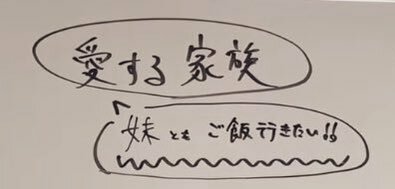 愛する家族
妹ともご飯行きたい!!